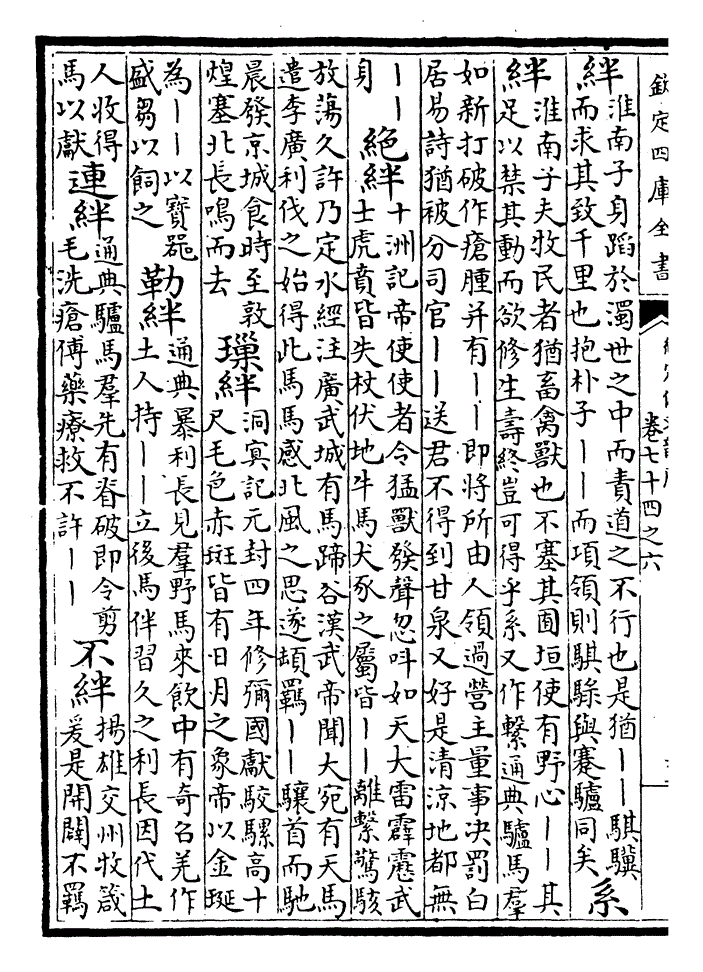 欽定四庫全書
卷七十四之六
絆
淮南子身蹈於濁世之中而責道之不行也是猶――騏驥
而求其致千里也抱朴子――而項領則騏騄與蹇驢同矣
系
絆
淮南子夫牧民者猶畜禽獸也不塞其囿垣使有野心――其
足以禁其動而欲修生壽終豈可得乎系又作繫通典驢馬羣
如新打破作瘡腫并有――即將所由人領過營主量事決罰白
居易詩猶被分司官――送君不得到甘泉又好是清涼地都無
――
身
絕絆
十洲記帝使使者令猛獸發聲忽叫如天大雷霹靂武
士虎賁皆失杖伏地牛馬犬豕之屬皆――離繫驚駭
放蕩久許乃定水經注廣武城有馬蹄谷漢武帝聞大宛有天馬
遣李廣利伐之始得此馬馬感北風之思遂頓羈――驤首而馳
晨發京城食時至敦
煌塞北長鳴而去
璅絆
洞冥記元封四年修彌國獻駮騾高十
尺毛色赤斑皆有日月之象帝以金璅
為――以寶器
盛芻以飼之
勒絆
通典暴利長見羣野馬來飲中有奇名羌作
土人持――立後馬伴習久之利長因代土
人收得
馬以獻
連絆
通典驢馬羣先有脊破即令剪
毛洗瘡傅藥療救不許――
不絆
揚雄交州牧箴
爰是開闢不羈